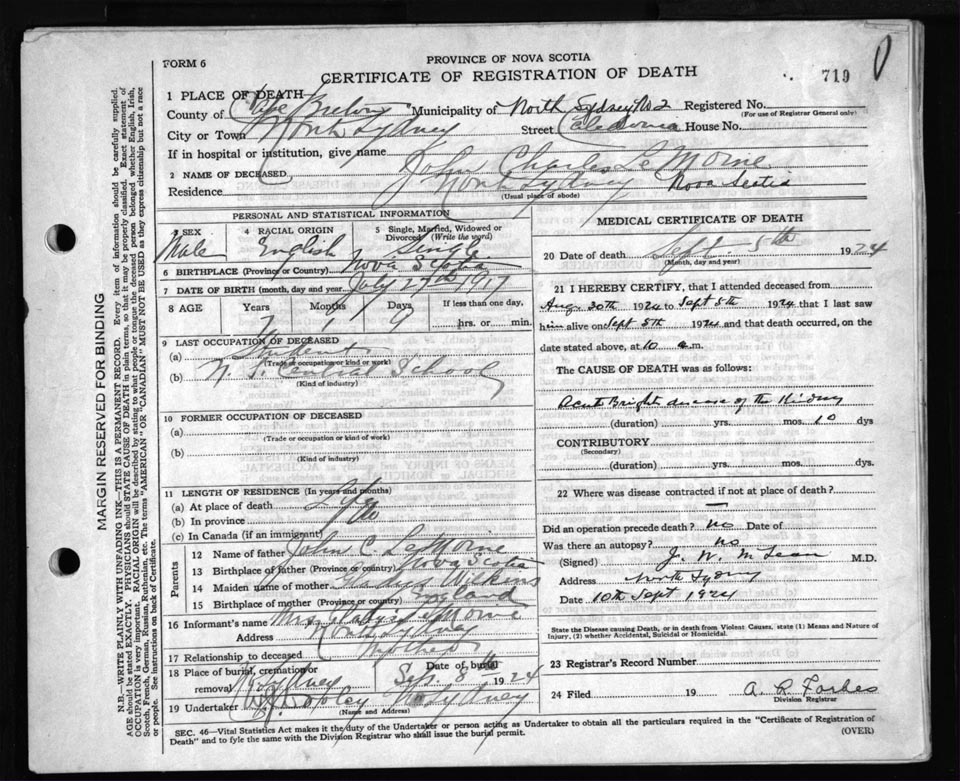 PROVINCE OF NOVA SCOTIA
FORM 6
CERTIFICATE OF REGISTRATION OF DEATH
719
1 PLACE OF DEATH
County of Cape Breton Municipality of North Sydney No 2 Registered No.
(For use of Registrar General only)
City or Town North Sydney Street Caledonia House No.
If in hospital or institution, give name
2 NAME OF DECEASED John Charles Le Moine
Residence North Sydney Nova Scotia
(Usual place of abode)
PERSONAL AND STATISTICAL INFORMATION
3 SEX Male
4 RACIAL ORIGIN English
5 Single, Married, Widowed or Divorced (Write the word) Single
6 BIRTHPLACE (Province or Country) Nova Scotia
7 DATE OF BIRTH (month, day and year) July 27th 1917
8 AGE Years Months Days If less than one day,
7 1 9 hrs. or min.
9 LAST OCCUPATION OF DECEASED
(a) Student
(Trade or occupation or kind of work)
(b) N. S. Central School
(Kind of industry)
10 FORMER OCCUPATION OF DECEASED
(a)
(Trade or occupation or kind of work)
(b)
(Kind of industry)
11 LENGTH OF RESIDENCE (In years and months)
(a) At place of death Life
(b) In province do
(c) In Canada (if an immigrant)
Parents
12 Name of father John C. Le Moine
13 Birthplace of father (Province or country) Nova Scotia
14 Maiden name of mother Gladys Wilkins
15 Birthplace of mother (Province or country) England
16 Informant's name Mrs Gladys LeMoine
Address North Sydney
17 Relationship to deceased Mother
18 Place of burial, cremation or removal N Sydney Date of burial Sep. 8th 1924
19 Undertaker Copley N Sydney
(Name and Address)
MEDICAL CERTIFICATE OF DEATH
20 Date of death Sept. 5th 1924
(Month, day and year)
21 I HEREBY CERTIFY, that I attended deceased from
Aug 30th 1924 to Sept 5th 1924 that I last saw
him alive on Sept 5th 1924 and that death occurred, on
date stated above, at 10 a.m.
The CAUSE OF DEATH was as follows:
Acute Brights disease of the Kidney
(duration) yrs. mos. 10 dys
CONTRIBUTORY
(Secondary)
(duration) yrs. mos. dys.
22 Where was disease contracted if not at place of death?
—
Did an operation precede death? no Date of
Was there an autopsy? no
(Signed) J. W. McLean M.D.
Address North Sydney
Date 10th Sept 1924
State the Disease causing Death, or in death from Violent Causes, state (1) Means and Nature of Injury, (2) whether Accidental, Suicidal or Homicidal.
23 Registrar's Record Number
24 Filed 19 A. R. Forbes
Division Registrar
SEC. 46—Vital Statistics Act makes it the duty of the Undertaker or person acting as Undertaker to obtain all the particulars required in the "Certificate of Registration of
Death" and to fyle the same with the Division Registrar who shall issue the burial permit.
(OVER)
MARGIN RESERVED FOR BINDING
N.B.—WRITE PLAINLY WITH UNFADING INK—THIS IS A PERMANENT RECORD. Every item of information should be carefully supplied.
AGE should be stated EXACTLY. PHYSICIANS should STATE CAUSE OF DEATH in plain terms, so that it may be properly classified. Exact statement of
OCCUPATION is very important. RACIAL ORIGIN will be described by stating to what people or tongue the deceased person belonged whether English, Irish,
Scotch, French, German, Russian, Ruthenian, etc. The terms "AMERICAN" OR "CANADIAN" MUST NOT BE USED as they express citizenship but not a race
or people. See instructions on back of Certificate.